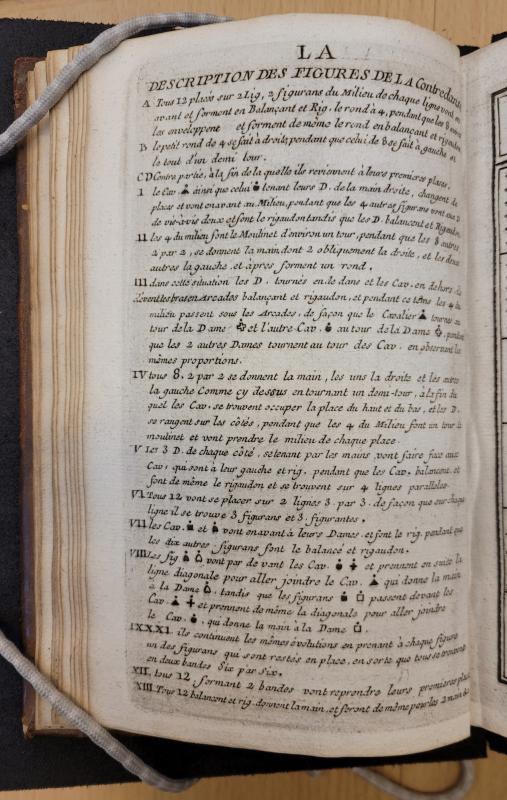 LA
DESCRIPTION DES FIGURES DE LA Contredanse
A Tous 12 placés sur 2 Lig, 2 figurans du Milieu de chaque ligne vont en
avant et forment en Balançant et Rig. le rond à 4, pendant que les 8 autres
les enveloppent et forment de même le rond en balançant et rigaudon
B le petit rond de 4 se fait à droite; pendant que celui de 8 se fait à gauche et
le tout d'un demi tour.
CD Contre partie, à la fin de la quelle ils reviennent à leurs premieres places.
I le Cav. ainsi que celui tenant leurs D. de la main droite, changent de
places et vont en avant au Milieu, pendant que les 4 autres figurans vont aux D.
de vis-à-vis d'eux et font le rigaudon tandis que les D. balancent et Rigaudon.
II les 4 du milieu font le Moulinet d'environ un tour, pendant que les 8 autres
2 par 2, se donnent la main, dont 2 obliquement la droite, et les deux
autres la gauche et àpres forment un rond.
III dans cette situation les D. tournés en de dans et les Cav. en dehors
élevent les bras en Arcades balançant et rigaudon, et pendant ce tèms les 4 du
milieu passent sous les Arcades, de façon que le Cavalier tourne au
tour de la Dame et l'autre Cav. au tour de la Dame , pendant
que les 2 autres Dames tournent au tour des Cav. en observant les
mêmes proportions.
IV tous 8, 2 par 2 se donnent la main, les uns la droite et les autres
la gauche Comme cy dessus en tournant un demi-tour, à la fin du
quel les Cav. se trouvent occuper la place du haut et du bas, et les D.
se rangent sur les côtés, pendant que les 4 du Milieu font un tour de
moulinet et vont prendre le milieu de chaque place.
V Les 3 D. de chaque côté, se tenant par les mains vont faire face aux
Cav. qui sont à leur gauche et rig. pendant que les Cav. balancent, et
font de même le rigaudon et se trouvent sur 4 lignes paralleles.
VI Tous 12 vont se placer sur 2 lignes 3 par 3. de façon que sur chaque
ligne il se trouve 3 figurans et 3. figurantes.
VII les Cav. et vont en avant à leurs Dames. et font le rig. pendant que
les dix autres figurans font le balancé et rigaudon.
VIII Les fig vont par de vant les Cav. et prennent en suite la
ligne diagonale pour aller joindre le Cav. qui donne la main
à la Dame , tandis que les figurans passent devant les
Cav. et prennent de même la diagonale pour aller joindre
le Cav. , qui donne la main à la Dame .
IX X XI. ils continuent les mêmes évolutions en prenant à chaque figure
un des figurans qui sont restés en place, en sorte que tous se trouvent
en deux bandes Six par Six.
XII. tous 12 formant 2 bandes vont reprendre leurs premieres places
XIII. Tous 12 balancent et rig. donnent la main, et feront de même pour les 2 mains